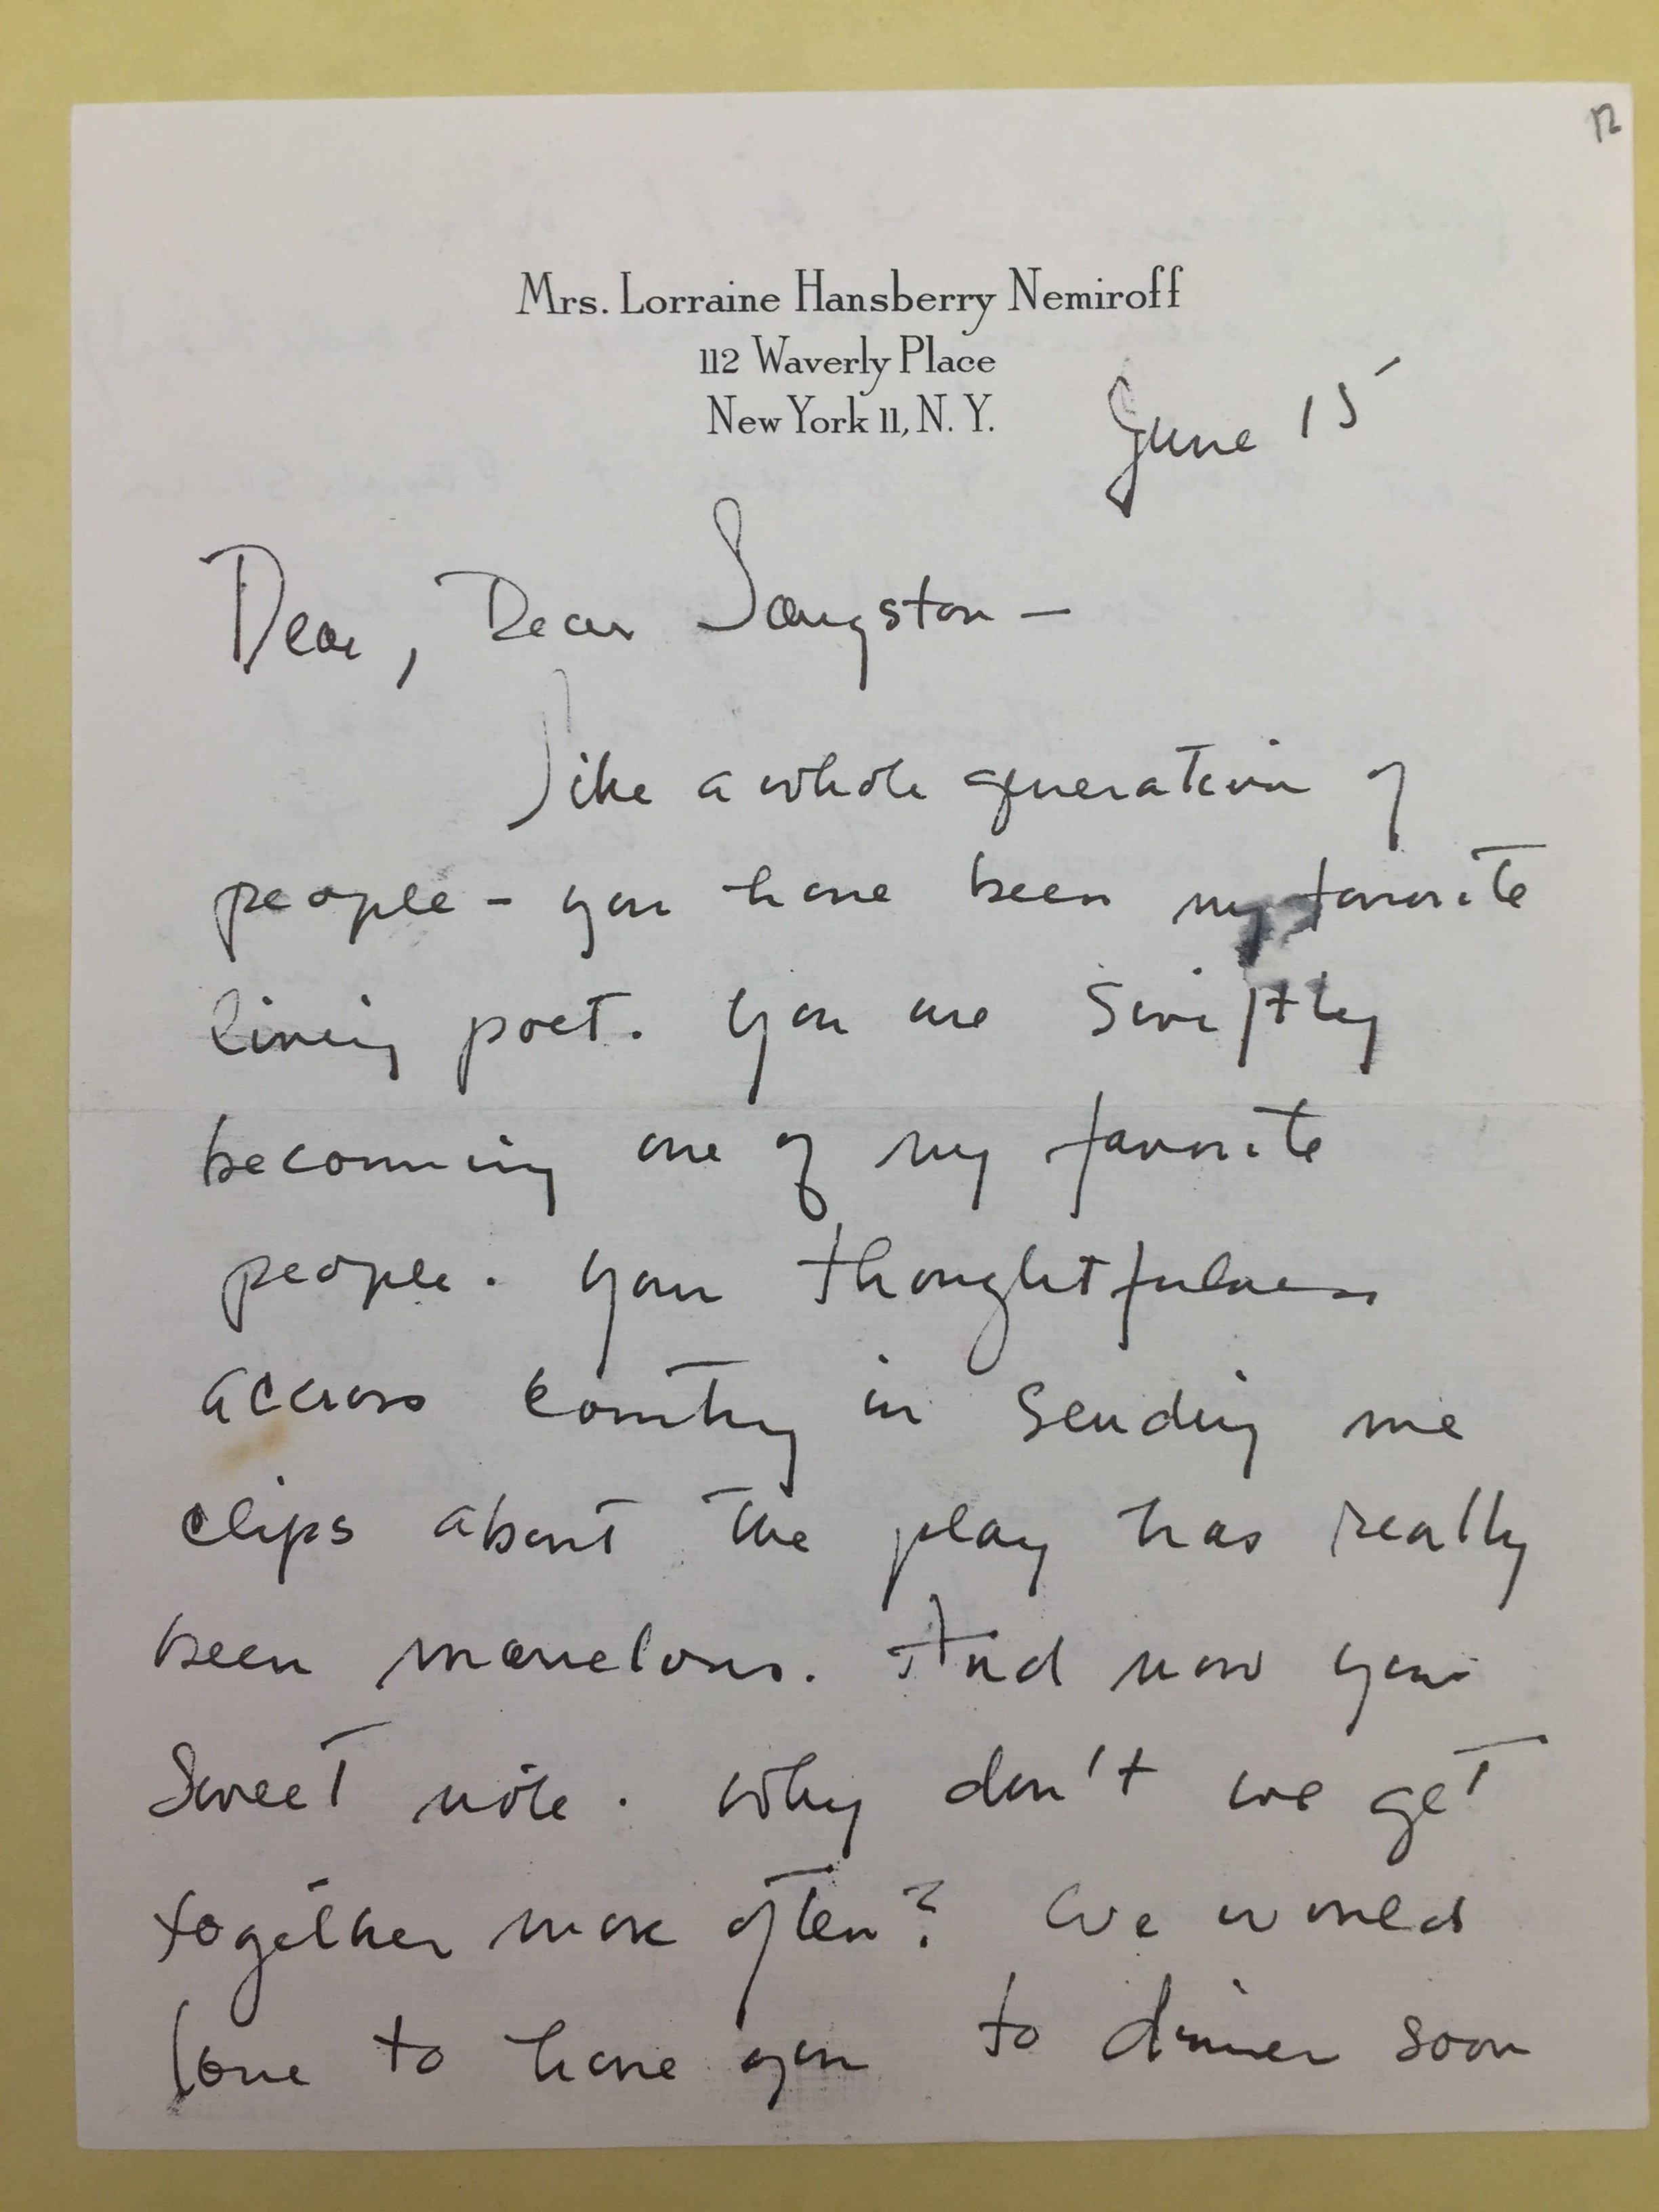 12
Mrs. Lorraine Hansberry Nemiroff
112 Waverly Place
New York 11, N. Y.
June 15
Dear, Dear Langston –
Like a whole generation of
people – you have been my favorite
living poet. You are swiftly
becomming one of my favorite
people. Your thoughtfulness
accross country in sending me
clips about the play has really
been marvelous. And now your
sweet note. Why don't we get
together more often? We would
love to have you to dinner soon